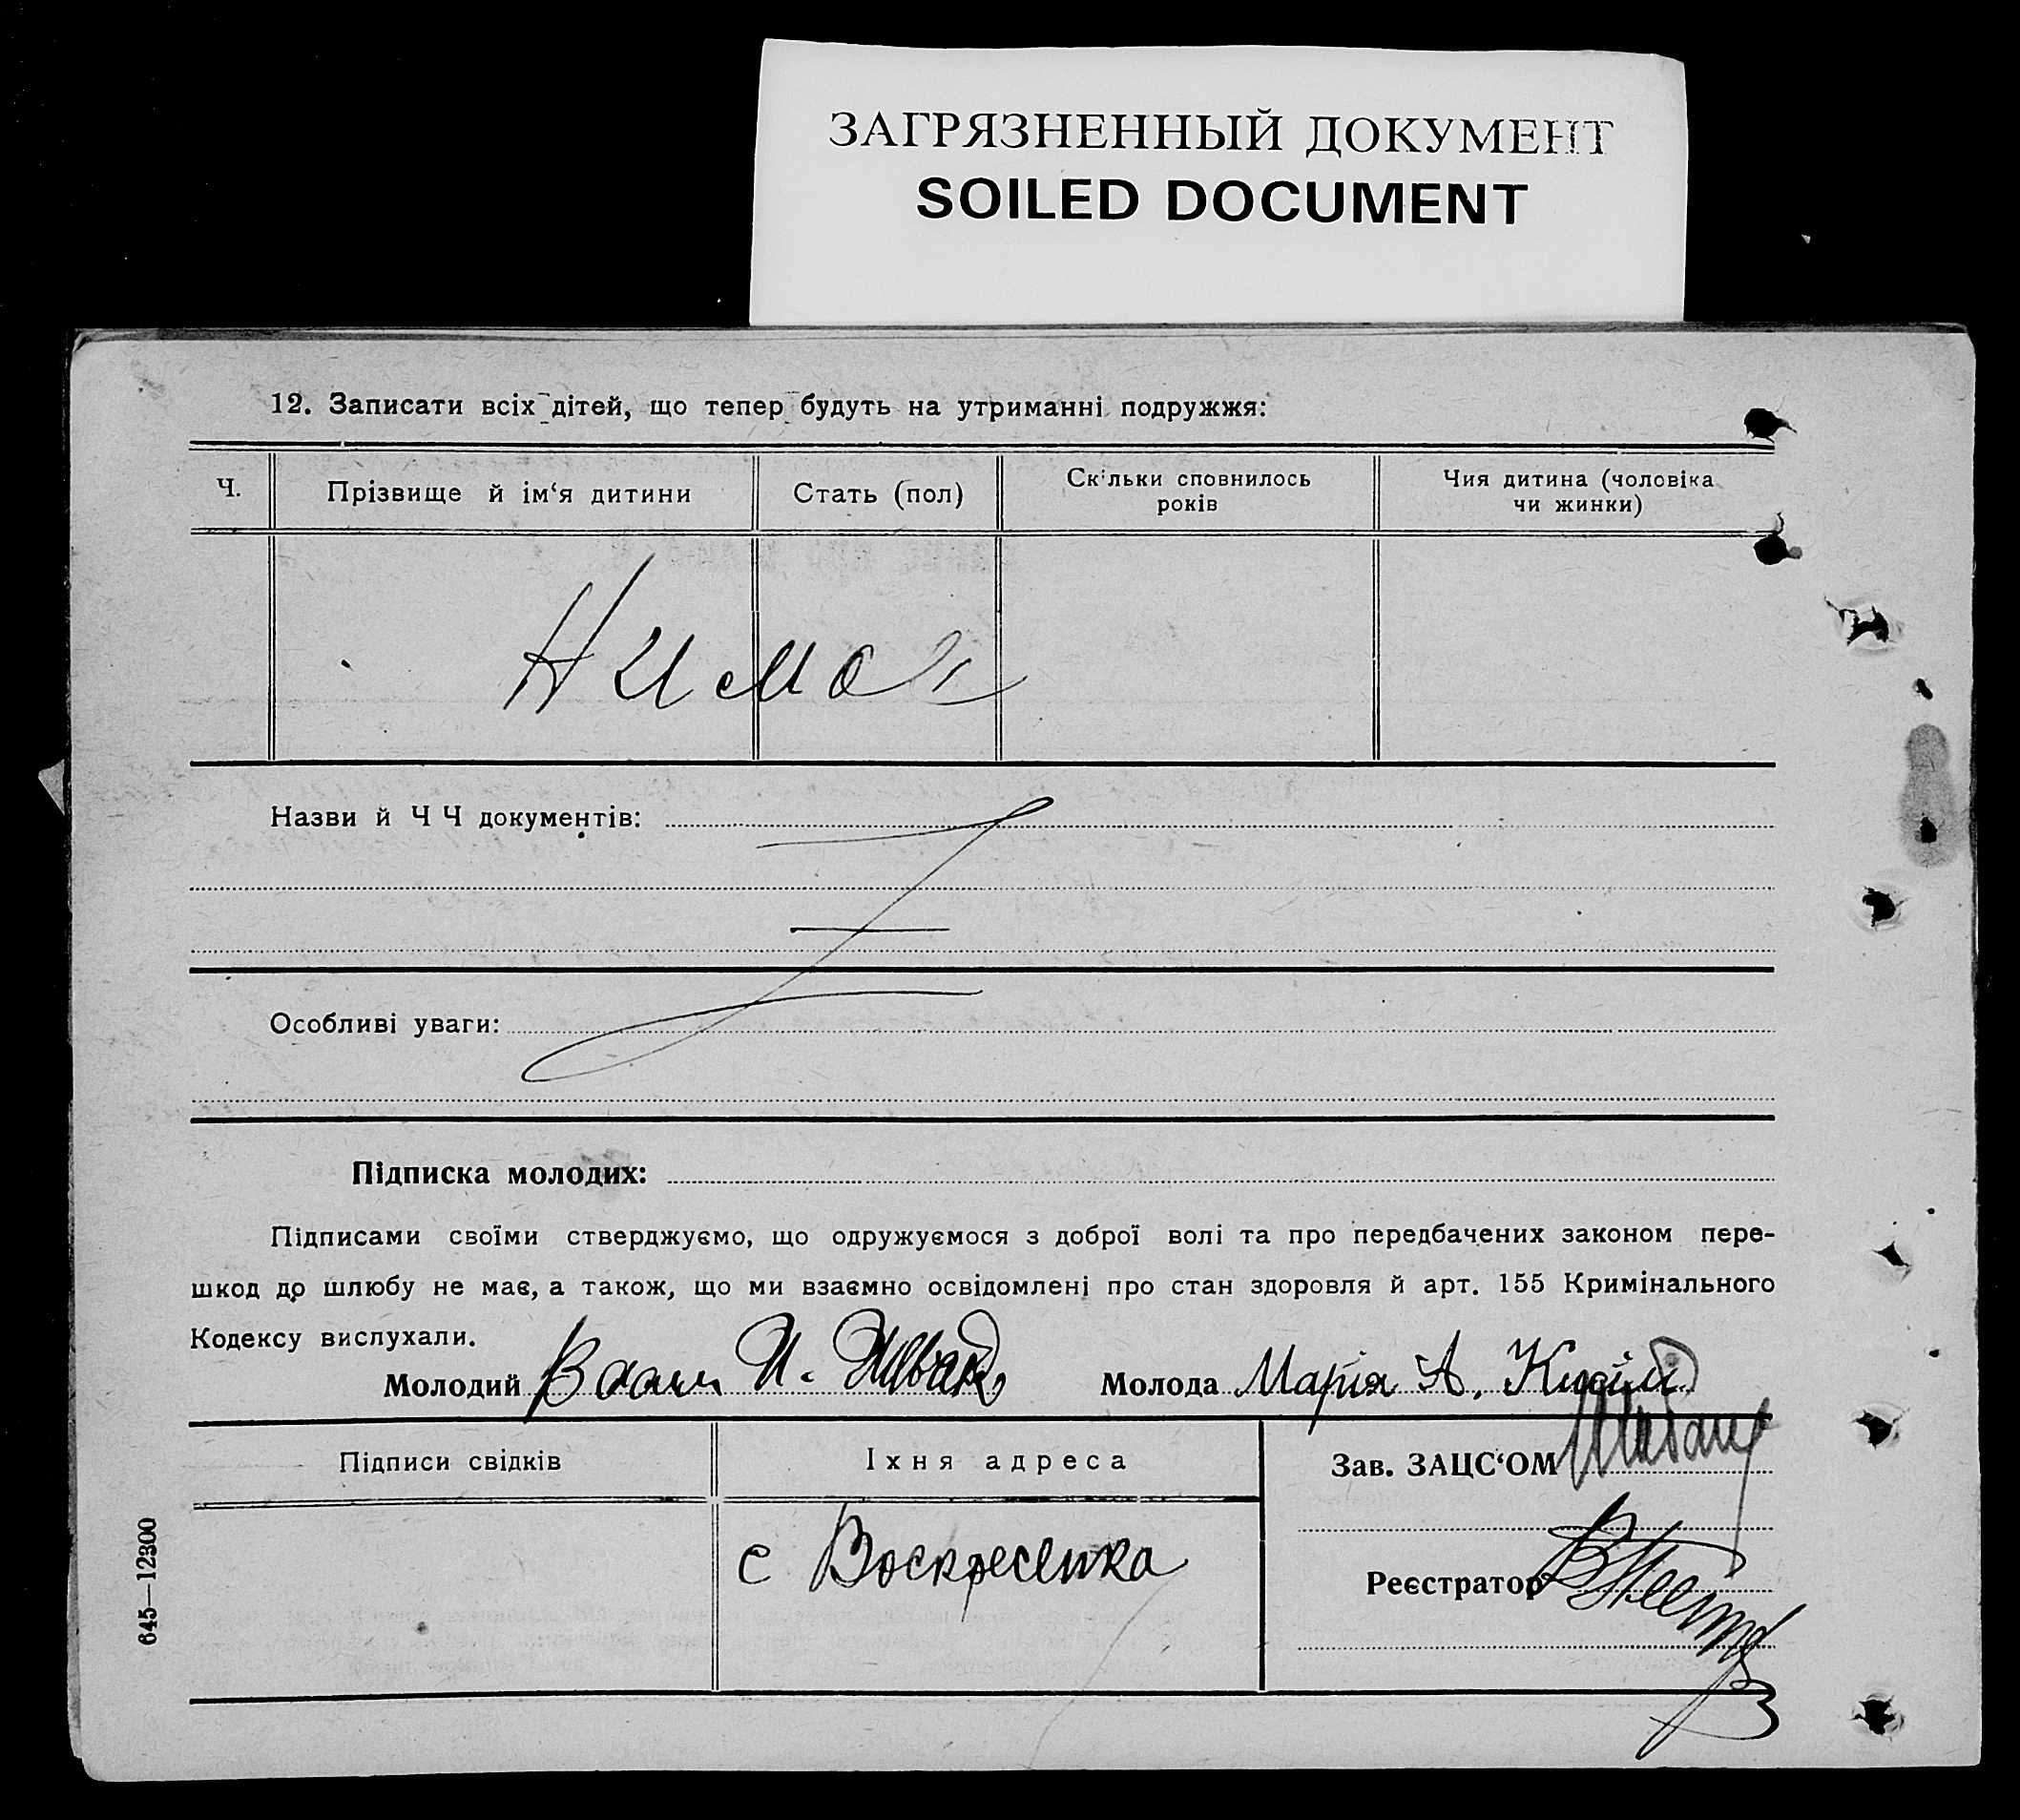 ЗАГРЯЗНЕННЫЙ ДОКУМЕНТ
SOILED DOCUMENT
12. Записати всіх дітей, що тепер будуть на утриманні подружжя:
Ч.
Прізвище й ім‘я дитини
Стать (пол)
Скільки сповнилось
років
Чия дитина (чоловіка
чи жинки)
Назви й Ч Ч документів:
Особливі уваги:
Підписка молодих:
Підписами своїми стверджуємо, що одружуємося з доброї волі та про передбачених законом пере-
шкод до шлюбу не має, а також, що ми взаємно освідомлені про стан здоровля й арт. 155 Кримінального
Кодексу вислухали.
Молодий
Молода Марія А.
Підписи свідків
Іхня адреса
Зав. ЗАЦС‘ОМ
с Воскресенка
Реєстратор
645—12300